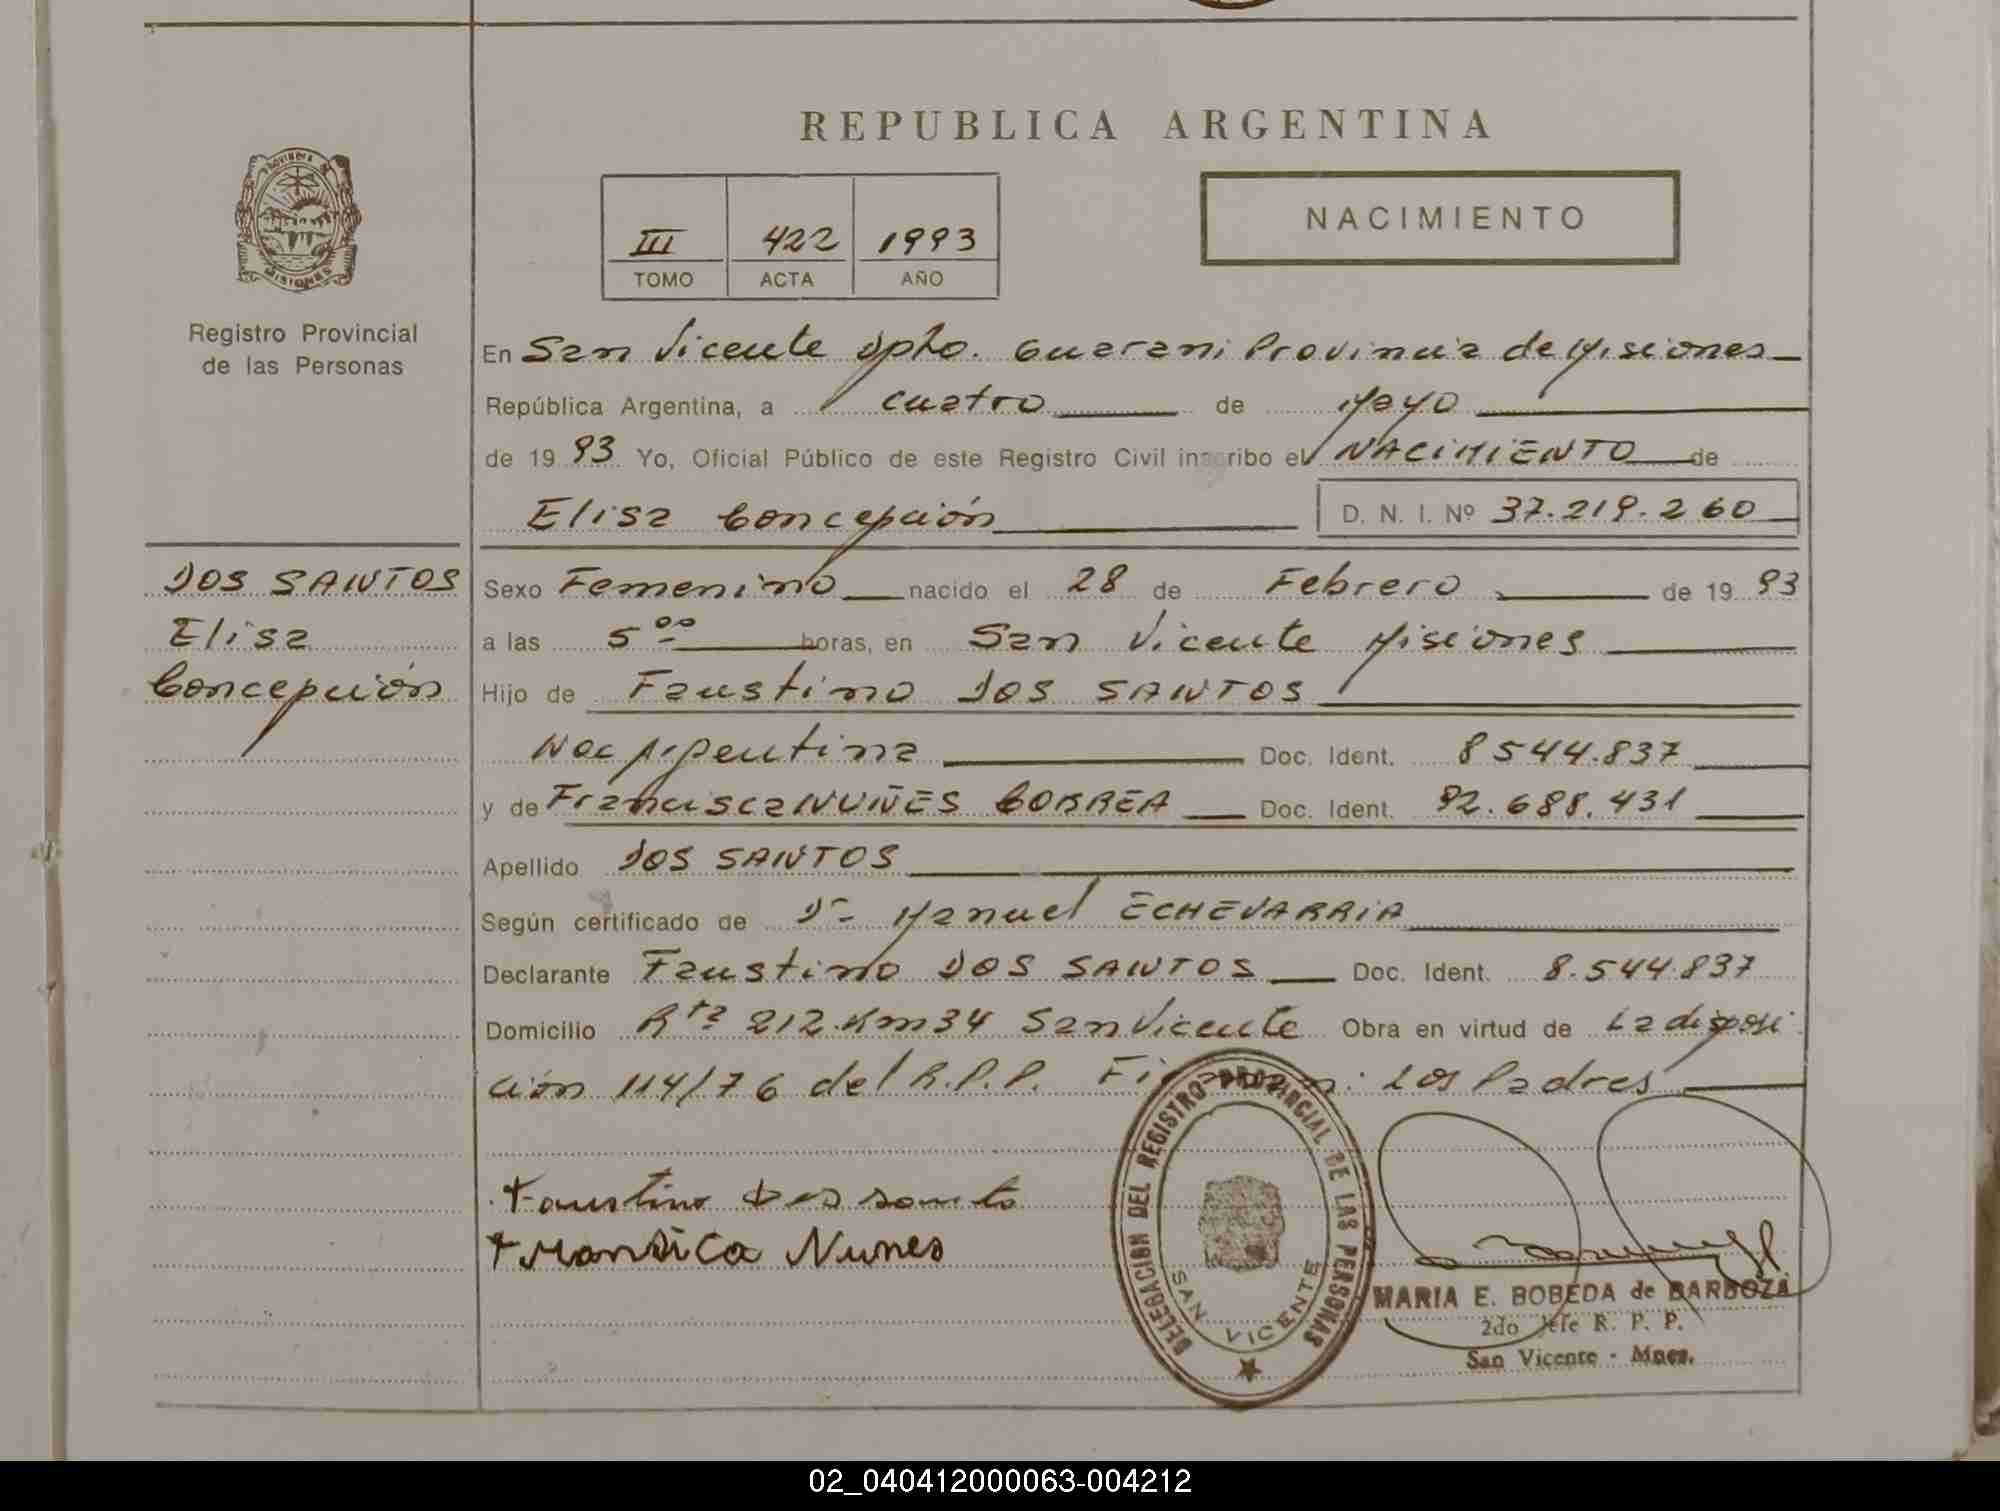 REPUBLICA ARGENTINA
PROVINCIA DE
MISIONES
Registro Provincial
de las Personas
III 422 1993
TOMO ACTA AÑO
NACIMIENTO
En San Vicente Dpto. Guarani Provincia de Misiones
República Argentina, a cuatro de Mayo
de 19 93 Yo, Oficial Público de este Registro Civil inscribo el NACIMIENTO de
Elisa Concepción D. N. I. Nº 37.219.260
DOS SANTOS
Elisa
Concepción
Sexo Femenino nacido el 28 de Febrero de 19 93
a las 5 00 horas, en San Vicente Misiones
Hijo de Faustino DOS SANTOS
Nac Argentina Doc. Ident. 8544.837
y de Francisca NUÑES CORREA Doc. Ident. 92.688.431
Apellido DOS SANTOS
Según certificado de Dr Manuel ECHEVARRIA
Declarante Faustino DOS SANTOS Doc. Ident. 8.544.837
Domicilio Rta 212. Km 34 San Vicente Obra en virtud de La disposi
ción 114/76 del R.P.P. Firman: Los Padres
Faustino Dos santo
Nunes
DELEGACION DEL REGISTRO PROVINCIAL DE LAS PERSONAS
SAN VICENTE
MARIA E. BOBEDA de BARBOZA
2do Jefe R. P. P.
San Vicente - Mnes.
02_040412000063-004212